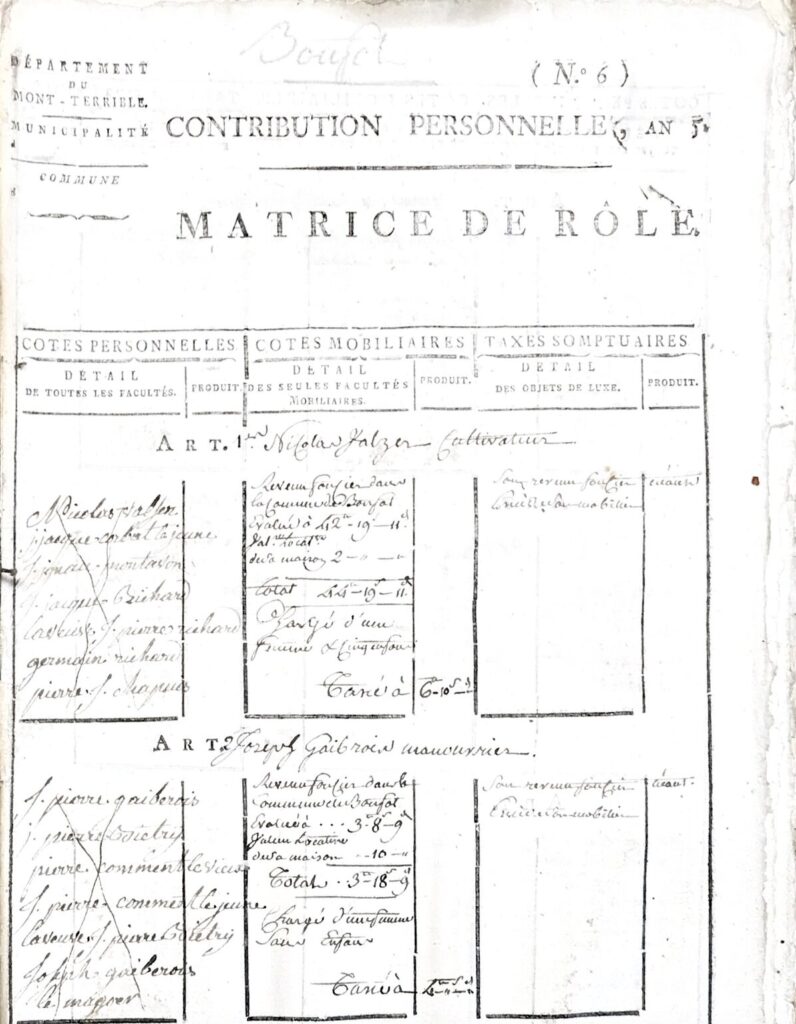 Bonfol
(N.° 6)
DÉPARTEMENT
DU
MONT-TERRIBLE.
MUNICIPALITÉ
CONTRIBUTION PERSONNELLE, AN 5.
COMMUNE
MATRICE DE RÔLE.
COTES PERSONNELLES COTES MOBILIAIRES TAXES SOMPTUAIRES
DÉTAIL
DE TOUTES LES FACULTÉS.
PRODUIT.
DÉTAIL
DES SEULES FACULTÉS
MOBILIAIRES.
PRODUIT.
DÉTAIL
DES OBJETS DE LUXE.
PRODUIT.
ART. 1er Nicolas Cultivateur
Nicolas
le jeune
j. jacque Richard
la veuve j. pierre richard
germain richard
pierre j.
Revenu foncier dans
la Commune de Bonfol
Evalué à 42-19-11
de sa maison 2
total 44-19-11
Chargé d'une
femme & Cinq enfans
Taxé à 6-10
Son revenu foncier
néant
ART. 2 Joseph Gaibrois manouvrier
j. pierre gaiberois
j. pierre Boietry
pierre comment le vieux
j. pierre comment le jeune
la veuve j. pierre Boietry
Joseph gaiberois
Revenu foncier dans la
Commune de Bonfol
Evalué à 3-8-9
Valeur Locative
de sa maison 10
Total 3-18-9
Chargé d'une femme
Sans Enfans
Taxé à 4
Son revenu foncier
néant